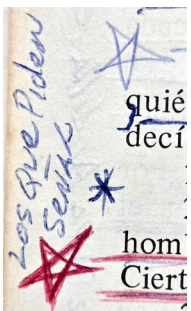 Los Que Piden
Señal
quié
decí
hom
Ciert